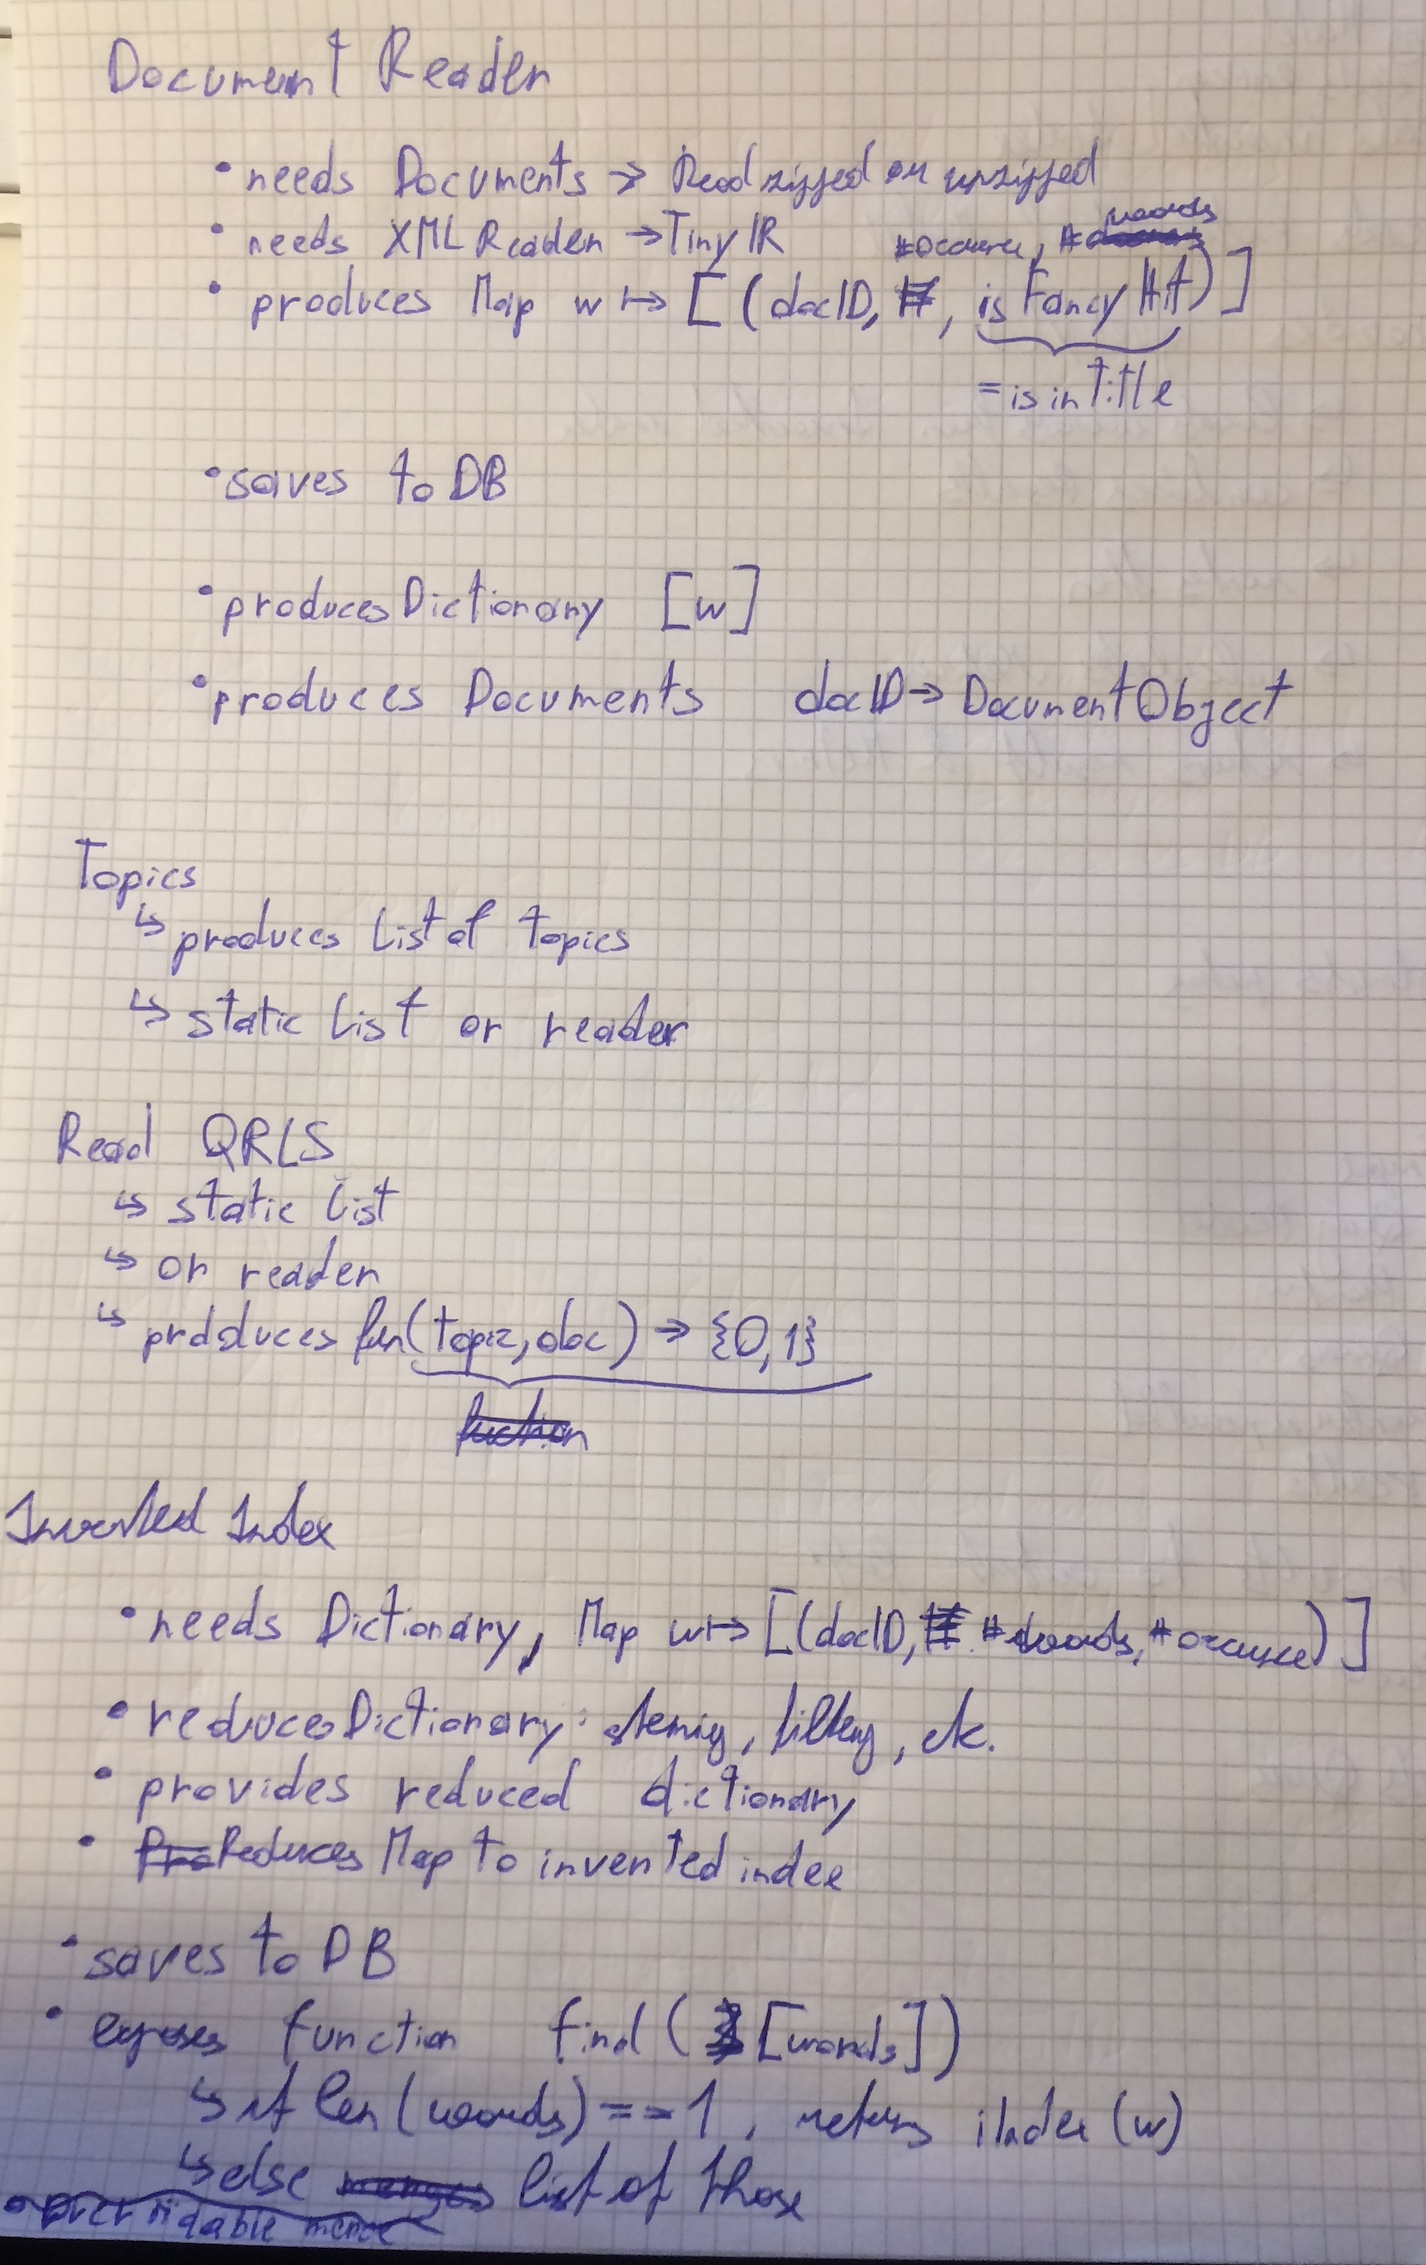 Document Reader
• needs Documents → Read zipped or unzipped
• needs XML Reader → Tiny IR
#occurence, #words
• produces Map w ↦ [(docID, #, is Fancy Hit)]
= is in Title
• saves to DB
• produces Dictionary [w]
• produces Documents docID → DocumentObject
Topics
↳ produces List of topics
↳ static List or reader
Read QRLS
↳ static list
↳ or reader
↳ produces fun(topic, doc) → {0,1}
fuction
Inverted Index
• needs Dictionary, Map w ↦ [(docID, #words, #occurence)]
• reduces Dictionary: steming, filtering, etc.
• provides reduced dictionary
• Pro Reduces Map to inverted index
• saves to DB
• exposes function find([words])
↳ if len(words) == 1, return iIndex(w)
↳ else merges list of those
• overridable merge